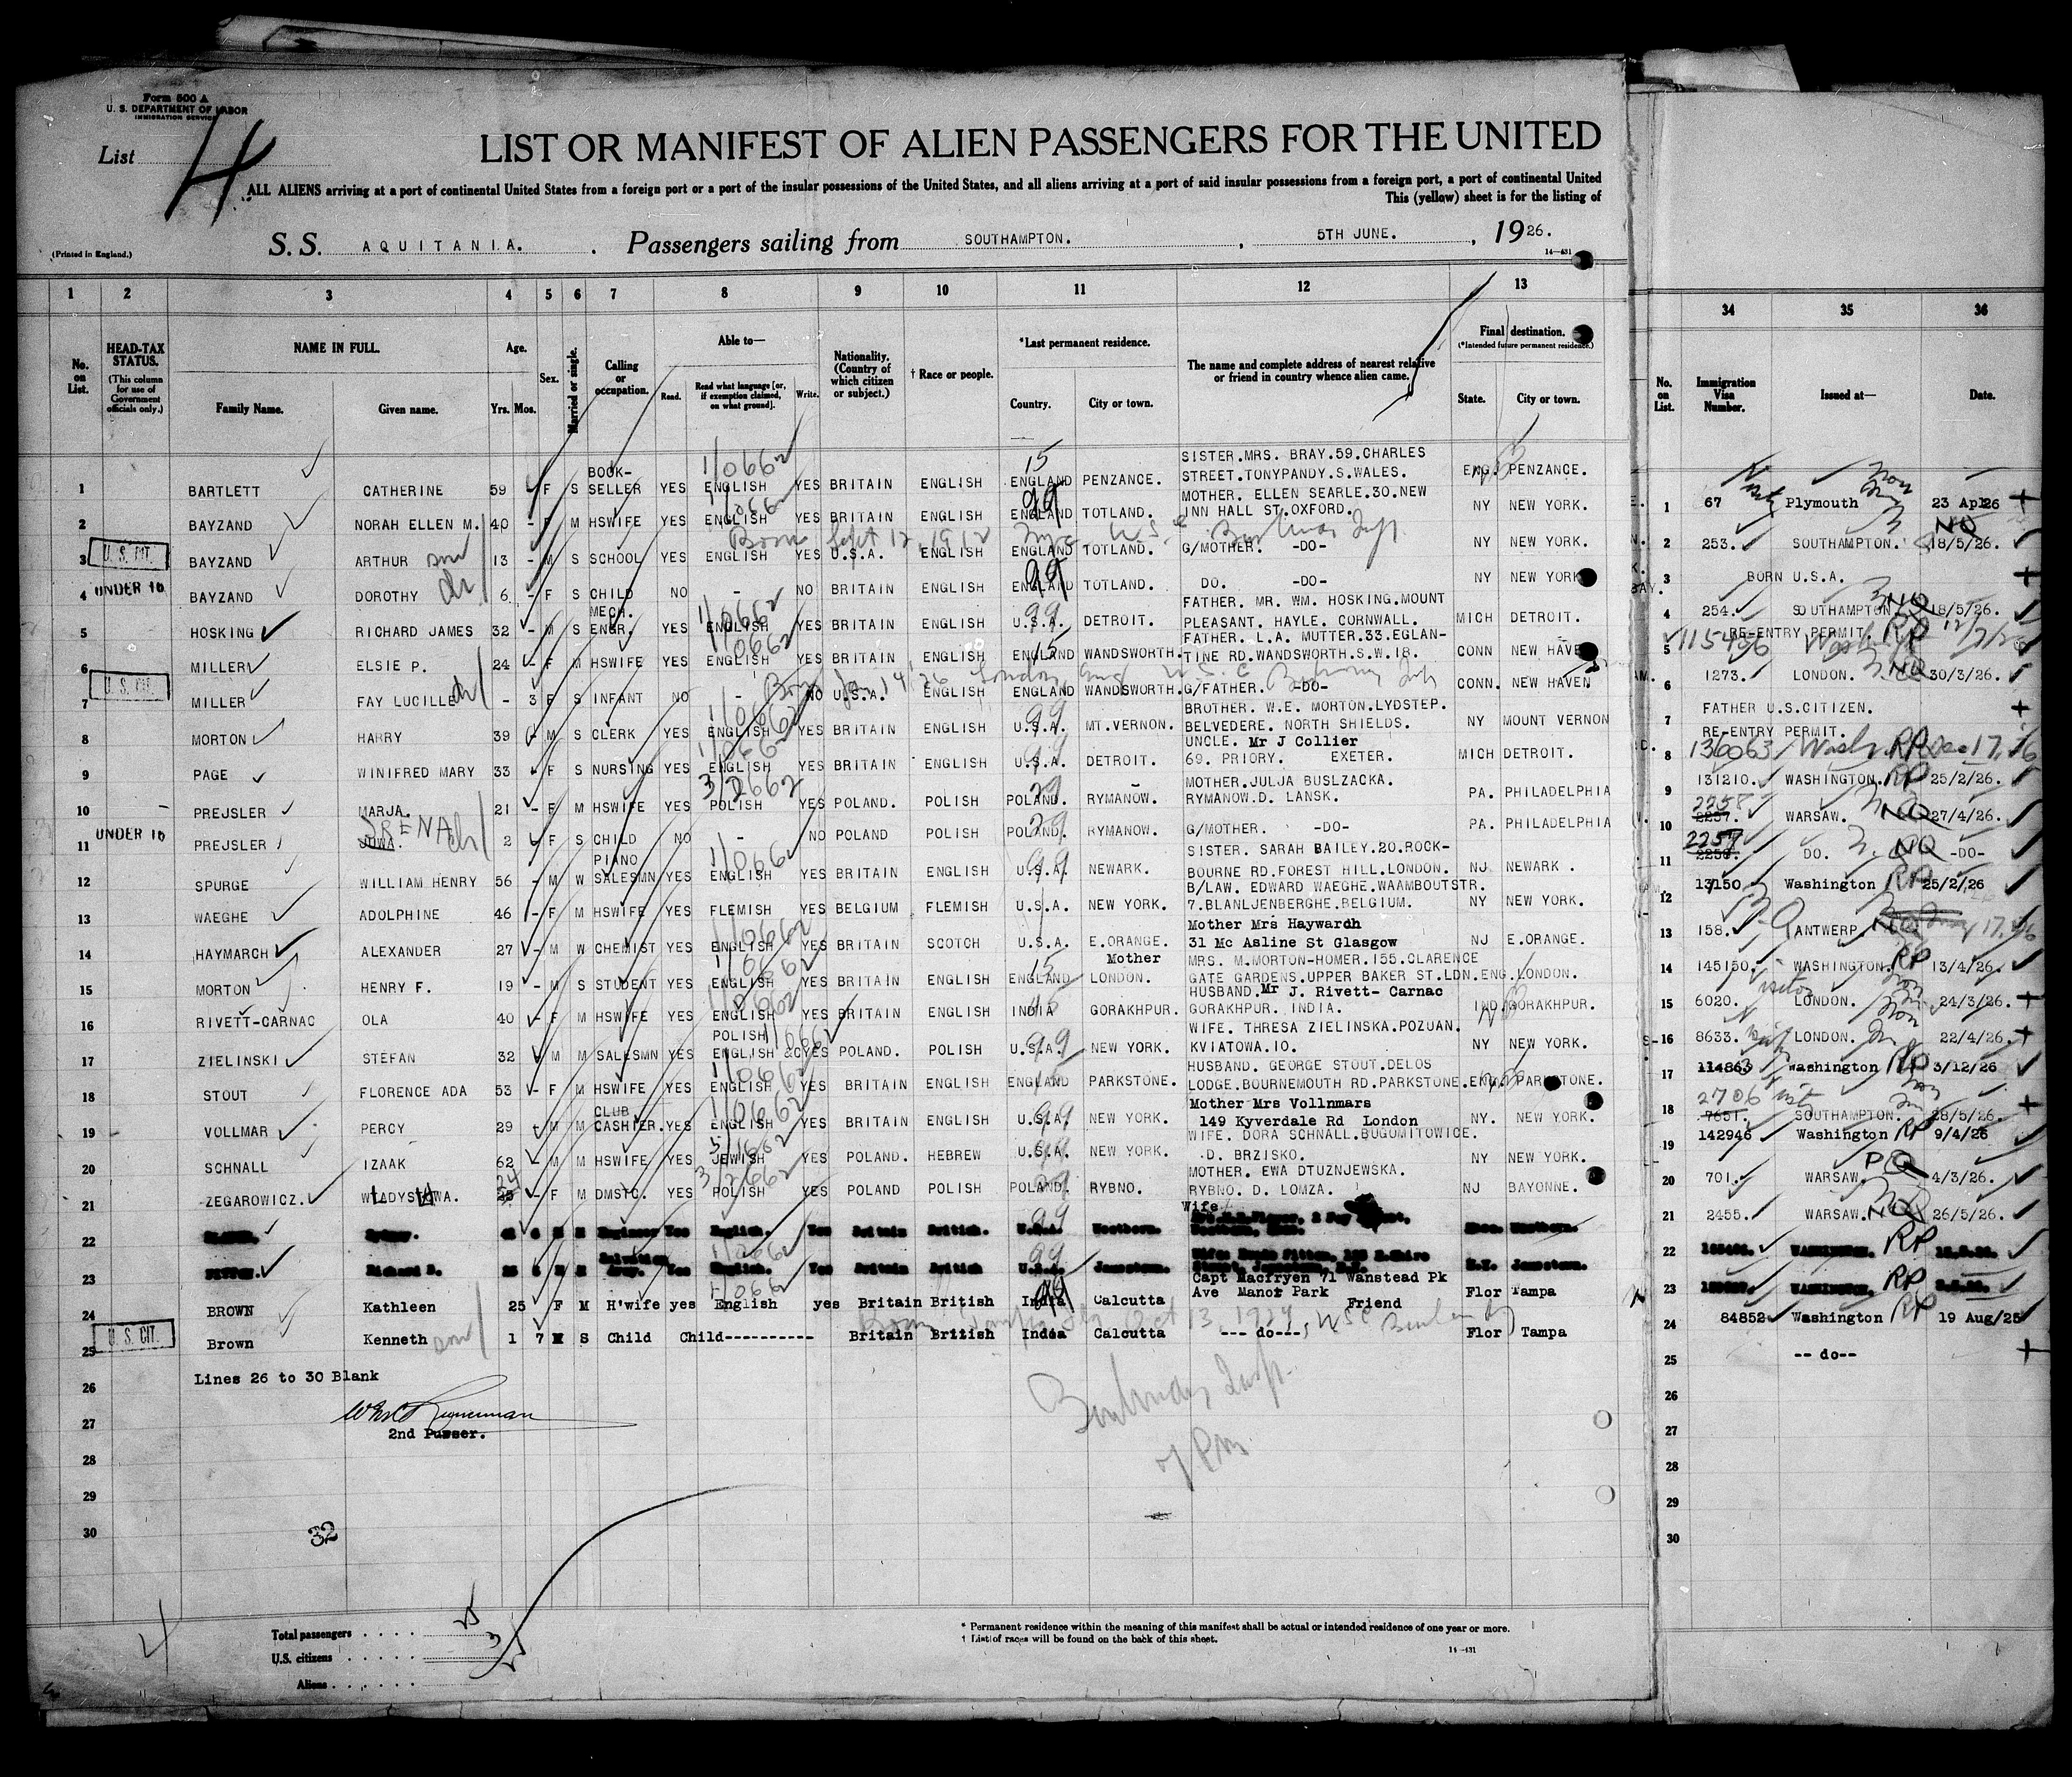 Form 500 A
U. S. DEPARTMENT OF LABOR
IMMIGRATION SERVICE
List 4
LIST OR MANIFEST OF ALIEN PASSENGERS FOR THE UNITED
ALL ALIENS arriving at a port of continental United States from a foreign port or a port of the insular possessions of the United States, and all aliens arriving at a port of said insular possessions from a foreign port, a port of continental United
This (yellow) sheet is for the listing of
(Printed in England.)
S. S. AQUITANIA. Passengers sailing from SOUTHAMPTON. , 5TH JUNE. , 1926.
14-431
1 2 3 4 5 6 7 8 9 10 11 12 13 34 35 36
No. on List. HEAD-TAX STATUS. (This column for use of Government officials only.) NAME IN FULL. Family Name. Given name. Age. Yrs. Mos. Sex. Married or single. Calling or occupation. Able to— Read. Read what language [or, if exemption claimed, on what ground]. Write. Nationality. (Country of which citizen or subject.) † Race or people. *Last permanent residence. Country. City or town. The name and complete address of nearest relative or friend in country whence alien came. Final destination. (*Intended future permanent residence.) State. City or town. No. on List. Immigration Visa Number. Issued at— Date.
1 BARTLETT CATHERINE 59 - F S BOOK-SELLER YES ENGLISH YES BRITAIN ENGLISH ENGLAND PENZANCE. SISTER.MRS. BRAY.59.CHARLES STREET.TONYPANDY.S.WALES. ENG. PENZANCE. 1 67 Plymouth 23 Ap126
2 BAYZAND NORAH ELLEN M. 40 - F M HSWIFE YES ENGLISH YES BRITAIN ENGLISH ENGLAND TOTLAND. MOTHER. ELLEN SEARLE.30.NEW INN HALL ST.OXFORD. NY NEW YORK. 2 253. SOUTHAMPTON. 18/5/26.
U. S. CIT.
3 BAYZAND ARTHUR son 13 - M S SCHOOL YES ENGLISH YES U.S.A. ENGLISH ENGLAND TOTLAND. G/MOTHER. -DO- NY NEW YORK. 3 BORN U.S.A.
UNDER 16
4 BAYZAND DOROTHY 6 - F S CHILD NO - NO BRITAIN ENGLISH ENGLAND TOTLAND. DO. -DO- NY NEW YORK 4 254. SOUTHAMPTON 18/5/26.
5 HOSKING RICHARD JAMES 32 - M S MECH. ENGR. YES ENGLISH YES BRITAIN ENGLISH U.S.A. DETROIT. FATHER. MR. WM. HOSKING.MOUNT PLEASANT. HAYLE. CORNWALL. MICH DETROIT. 5 RE-ENTRY PERMIT. 115486 Wash RP
6 MILLER ELSIE P. 24 - F M HSWIFE YES ENGLISH YES BRITAIN ENGLISH ENGLAND WANDSWORTH. FATHER. L.A. MUTTER.33.EGLAN-TINE RD.WANDSWORTH.S.W.18. CONN NEW HAVE 6 1273. LONDON. 30/3/26.
U. S. CIT.
7 MILLER FAY LUCILLE - 3 F S INFANT NO - NO U.S.A. ENGLISH ENGLAND WANDSWORTH. G/FATHER. -DO- CONN. NEW HAVEN 7 FATHER U.S.CITIZEN.
8 MORTON HARRY 39 - M S CLERK YES ENGLISH YES BRITAIN ENGLISH U.S.A. MT.VERNON. BROTHER. W.E. MORTON.LYDSTEP. BELVEDERE. NORTH SHIELDS. NY MOUNT VERNON 8 RE-ENTRY PERMIT. 136063 Wash. RP Dec 17, 
9 PAGE WINIFRED MARY 33 - F S NURSING YES ENGLISH YES BRITAIN ENGLISH U.S.A. DETROIT. UNCLE. Mr J Collier 69. PRIORY. EXETER. MICH DETROIT. 9 131210. WASHINGTON. RP 25/2/26.
10 PREJSLER MARJA. 21 - F M HSWIFE YES POLISH YES POLAND. POLISH POLAND. RYMANOW. MOTHER.JULJA BUSLZACKA. RYMANOW.D. LANSK. PA. PHILADELPHIA 10 2258 2257. WARSAW. 27/4/26.
UNDER 16
11 PREJSLER IRENA JOWA. 2 - F S CHILD NO - NO POLAND POLISH POLAND. RYMANOW. G/MOTHER. -DO- PA. PHILADELPHIA 11 2257 2256. DO. -DO-
12 SPURGE WILLIAM HENRY 56 - M W PIANO SALESMN YES ENGLISH YES BRITAIN ENGLISH U.S.A. NEWARK. SISTER. SARAH BAILEY.20.ROCK-BOURNE RD.FOREST HILL.LONDON. NJ NEWARK. 12 13150 Washington RP 25/2/26
13 WAEGHE ADOLPHINE 46 - F M HSWIFE YES FLEMISH YES BELGIUM FLEMISH U.S.A. NEW YORK. B/LAW. EDWARD WAEGHE.WAAMBOUTSTR. 7.BLANLJENBERGHE.BELGIUM. NY NEW YORK. 13 158. ANTWERP.
14 HAYMARCH ALEXANDER 27 - M W CHEMIST YES ENGLISH YES BRITAIN SCOTCH U.S.A. E.ORANGE. Mother Mrs Haywardh 31 Mc Asline St Glasgow NJ E.ORANGE. 14 145150. WASHINGTON. RP 13/4/26.
15 MORTON HENRY F. 19 - M S STUDENT YES ENGLISH YES BRITAIN ENGLISH ENGLAND LONDON. Mother MRS. M.MORTON-HOMER.155.CLARENCE GATE GARDENS.UPPER BAKER ST.LDN. ENG. LONDON. 15 6020. LONDON. 24/3/26.
16 RIVETT-CARNAC OLA 40 - F M HSWIFE YES ENGLISH YES BRITAIN ENGLISH INDIA GORAKHPUR. HUSBAND. Mr J. Rivett- Carnac GORAKHPUR. INDIA. IND. GORAKHPUR. 16 8633. LONDON. 22/4/26.
17 ZIELINSKI STEFAN 32 - M M SALESMN YES POLISH ENGLISH &C YES POLAND. POLISH U.S.A. NEW YORK. WIFE. THRESA ZIELINSKA.POZUAN. KVIATOWA.10. NY NEW YORK. 17 114863 Washington RP 3/12/26
18 STOUT FLORENCE ADA 53 - F M HSWIFE YES ENGLISH YES BRITAIN ENGLISH ENGLAND PARKSTONE. HUSBAND. GEORGE STOUT.DELOS LODGE.BOURNEMOUTH RD.PARKSTONE. ENG. PARKSTONE. 18 2706 7651. SOUTHAMPTON. 28/5/26.
19 VOLLMAR PERCY 29 - M M CLUB CASHIER. YES ENGLISH YES BRITAIN ENGLISH U.S.A. NEW YORK. Mother Mrs Vollnmars 149 Kyverdale Rd London NY. NEW YORK. 19 142946 Washington RP 9/4/26
20 SCHNALL IZAAK 62 - M M HSWIFE YES JEWISH YES POLAND. HEBREW U.S.A. NEW YORK. WIFE. DORA SCHNALL.BUGOMITOWICE. D. BRZISKO. NY NEW YORK. 20 701. WARSAW. 4/3/26.
21 ZEGAROWICZ. WLADYSLOWA. 24 - F M DMSTC. YES POLISH YES POLAND POLISH POLAND. RYBNO. MOTHER. EWA DTUZNJEWSKA. RYBNO. D. LOMZA. NJ BAYONNE. 21 2455. WARSAW. 26/5/26.
22 Sydney. Engineer Yes English. Yes Britain British. U.S.A. Wife 22 WASHINGTON. RP
23 Richard Salvation Army. Yes English. Yes Britain British U.S.A. Jamestown. N.Y. Jamestown. 23 WASHINGTON. RP
24 BROWN Kathleen 25 F M H'wife yes English yes Britain British India Calcutta Capt Macfryen 71 Wanstead Pk Ave Manor Park Friend Flor Tampa 24 84852 Washington RP 19 Aug/25
U. S. CIT.
25 Brown Kenneth son 1 7 M S Child Child---------- Britain British India Calcutta --- do--- Flor Tampa 25 -- do--
26 Lines 26 to 30 Blank 26
27 27
2nd Purser.
28 28
29 29
30 30
32
Total passengers . . . . 25
U.S. citizens . . . . . 3
Aliens . . . . . .
* Permanent residence within the meaning of this manifest shall be actual or intended residence of one year or more.
† List of races will be found on the back of this sheet.
14-431